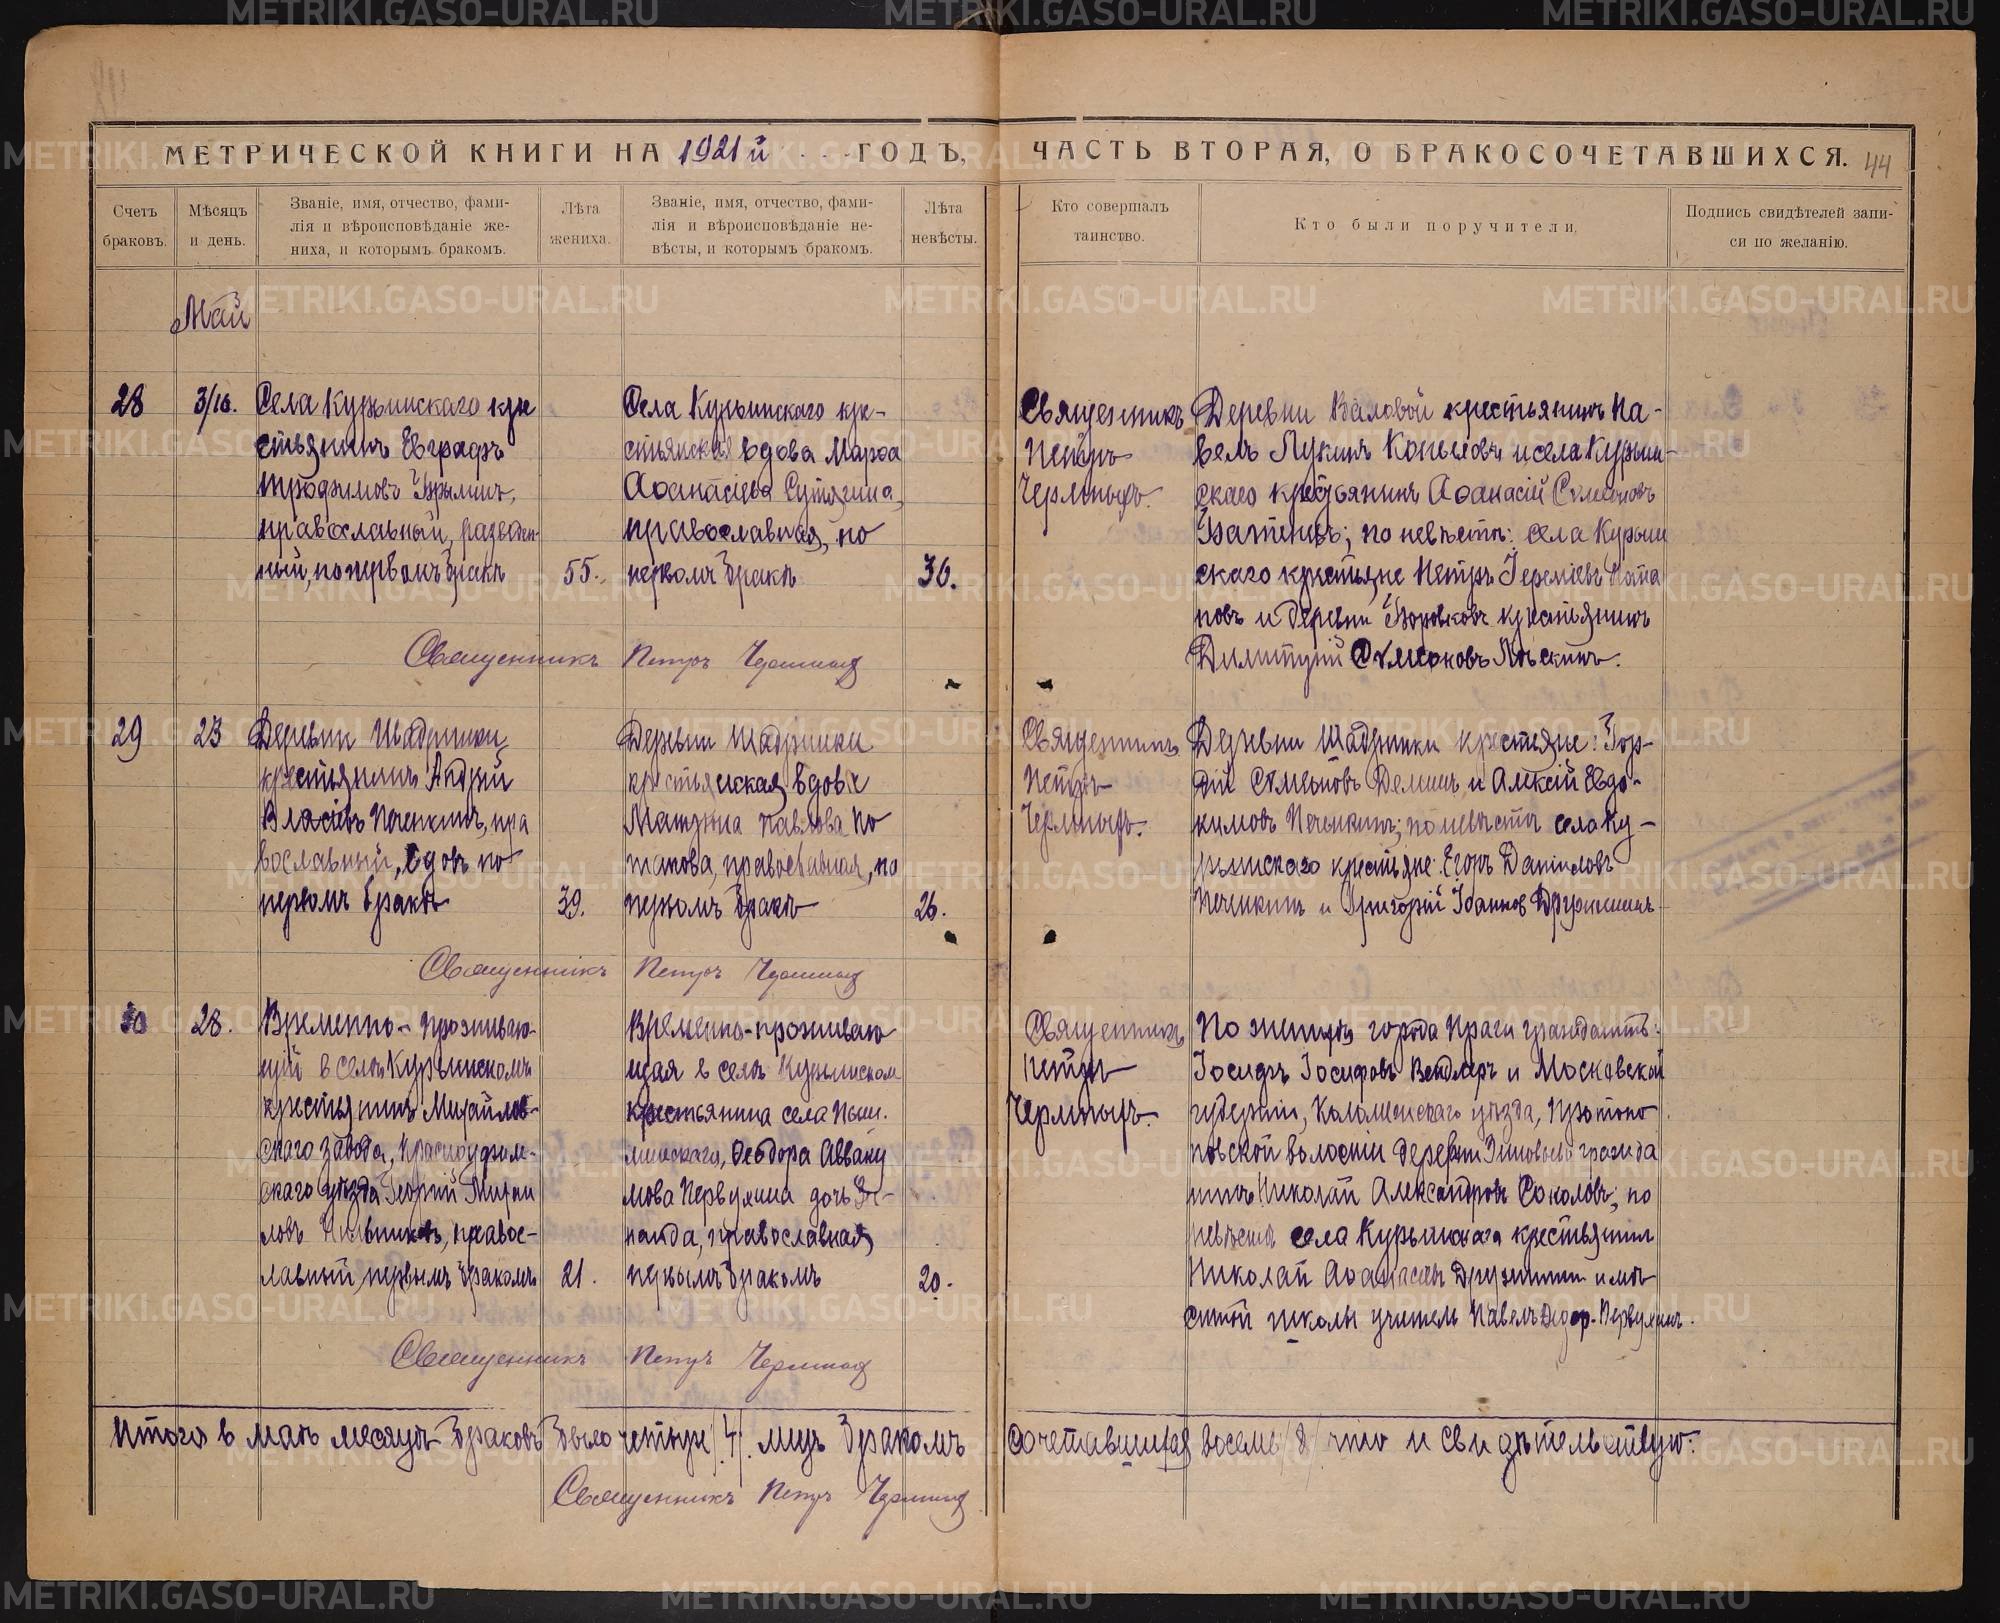 МЕТРИЧЕСКОЙ КНИГИ НА 1921й ГОДЪ,
ЧАСТЬ ВТОРАЯ, О БРАКОСОЧЕТАВШИХСЯ. 44
Счетъ браковъ.
Мѣсяцъ и день.
Званіе, имя, отчество, фами-
лія и вѣроисповѣданіе же-
ниха, и которымъ бракомъ.
Лѣта жениха.
Званіе, имя, отчество, фами-
лія и вѣроисповѣданіе не-
вѣсты, и которымъ бракомъ.
Лѣта невѣсты.
Кто совершалъ
таинство.
Кто были поручители.
Подпись свидѣтелей запи-
си по желанію.
Май
28
3/16.
Села Курьинскаго кре
стьянинъ Евграфъ
Трофимовъ
православный, разведен-
ный, по первомъ бракѣ
55.
Села Курьинскаго кре-
стьянская вдова Марѳа
Аѳанасіева Сутягина,
православная, по
первомъ бракѣ
36.
Священникъ
Петръ
Деревни Валовой крестьянинъ Па-
велъ Лукинъ Копыловъ и села Курьин-
скаго крестьянинъ Аѳанасій Симеоновъ
по невѣстѣ: села Курьин
скаго крестьяне Петръ Іереміевъ Пота
повъ и деревни Боровковъ крестьянинъ
Димитрій Симеоновъ
Священникъ Петръ
29
23
Деревни Шадринки
крестьянинъ Андрей
Власіевъ Печенкинъ, пра
вославный, вдовъ по
первомъ бракѣ
39.
Деревни Шадринки
крестьянская вдова
Матрона Павлова По
тапова, православная, по
первомъ бракѣ
26.
Священникъ
Петръ
Деревни Шадринки крестьяне: Гор-
дій Симеоновъ Деминъ и Алексій Евдо-
кимовъ Печенкинъ; по невѣстѣ села Ку-
рьинскаго крестьяне: Егоръ Даниловъ
Печенкинъ и Григорій Іоанновъ Дружининъ
Священникъ Петръ
30
28.
Временно-проживаю-
щій в селѣ Курьинскомъ
крестьянинъ Михайлов-
скаго завода, Красноуфим-
скаго уѣзда Георгій Михаи
ловъ правос-
лавный, первымъ бракомъ
21.
Временно-проживаю
щая в селѣ Курьинском
крестьянина села Пыш.
минскаго, Ѳеодора Авваку
мова Первухина дочь Зи-
наида, православная
первымъ бракомъ
20.
Священникъ
Петръ
По женихѣ города Праги гражданинъ:
Іосифъ Іосифовъ и Московской
губерніи, Коломенскаго уѣзда, Протопо
повской волости деревни гражда
нинъ Николай Александровъ Соколовъ; по
невѣстѣ села Курьинскаго крестьянин
Николай Аѳанасіевъ Дружинин и мѣ-
стной школы учитель Павелъ Ѳедор. Первухинъ.
Священникъ Петръ
Итого в маѣ месяцѣ браковъ было четыре /4/. лицъ бракомъ сочетавшихся восемь /8/ что и свидѣтельствую:
Священникъ Петръ